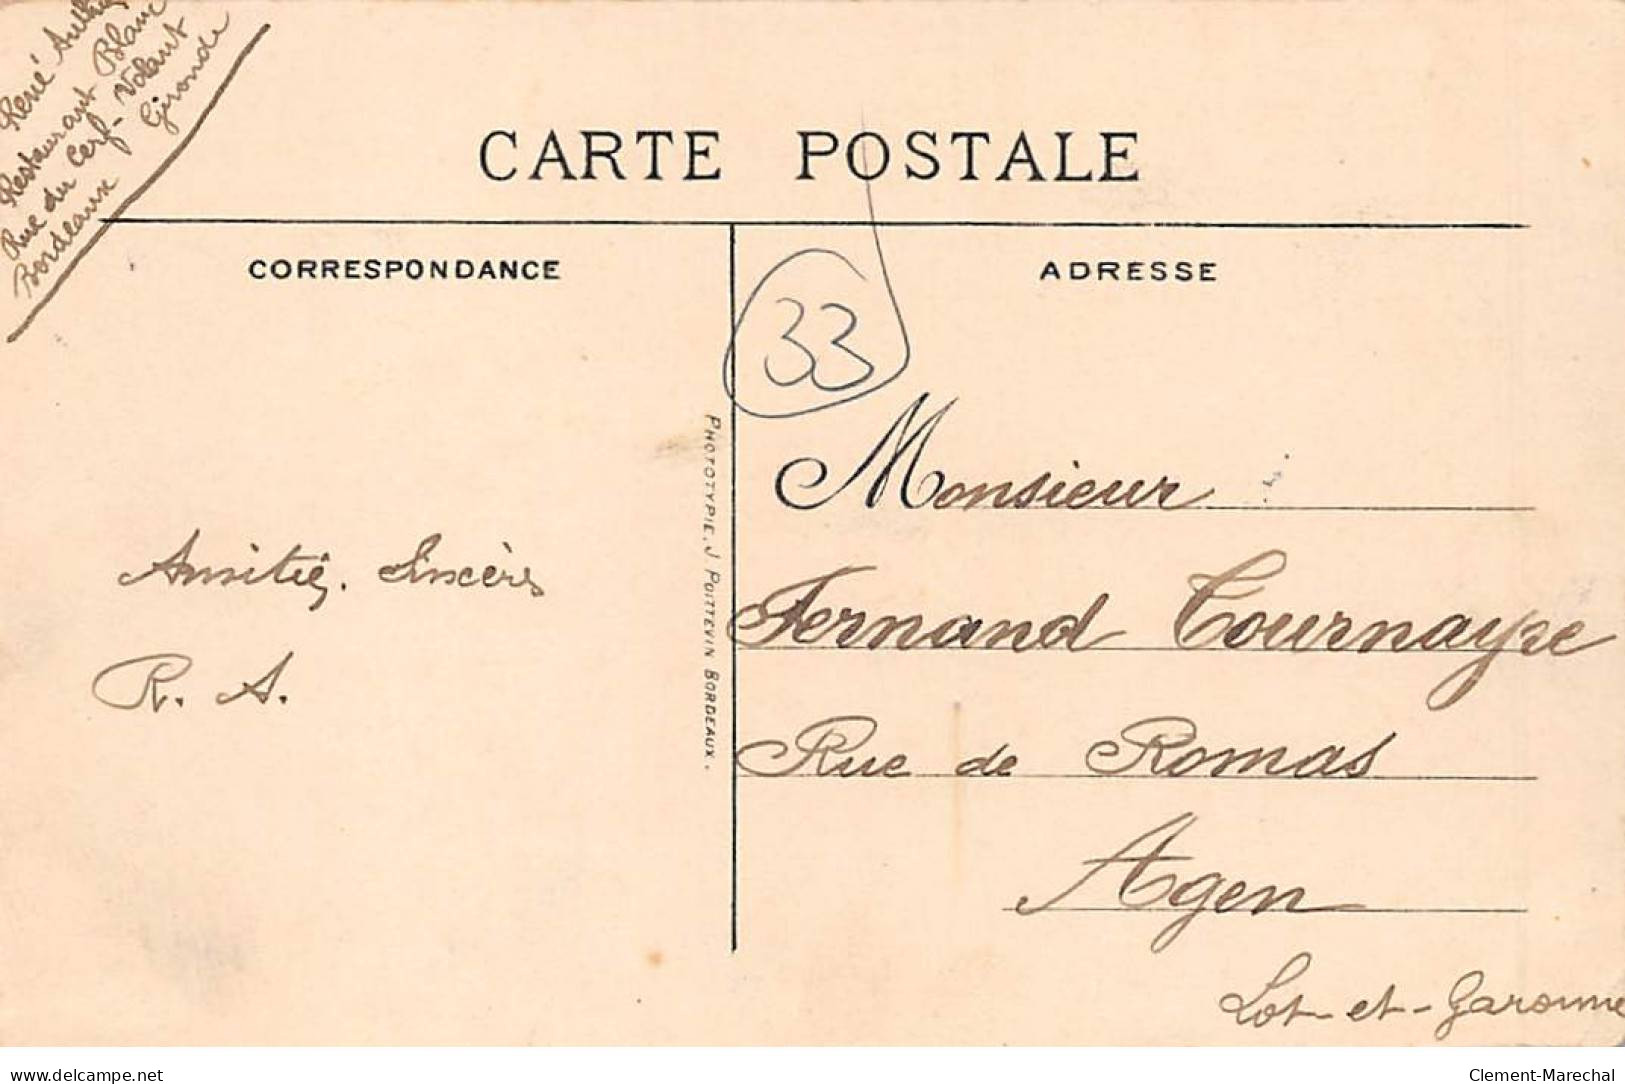 René
Restaurant Blanc
Rue du Cerf-Volant
Bordeaux Gironde
CARTE POSTALE
CORRESPONDANCE
ADRESSE
33
Amitiés Sincères
R. A.
PHOTOTYPIE. J POITTEVIN BORDEAUX.
Monsieur
Fernand Tournayre
Rue de Romas
Agen
Lot-et-Garonne
www.delcampe.net
Clement-Marechal